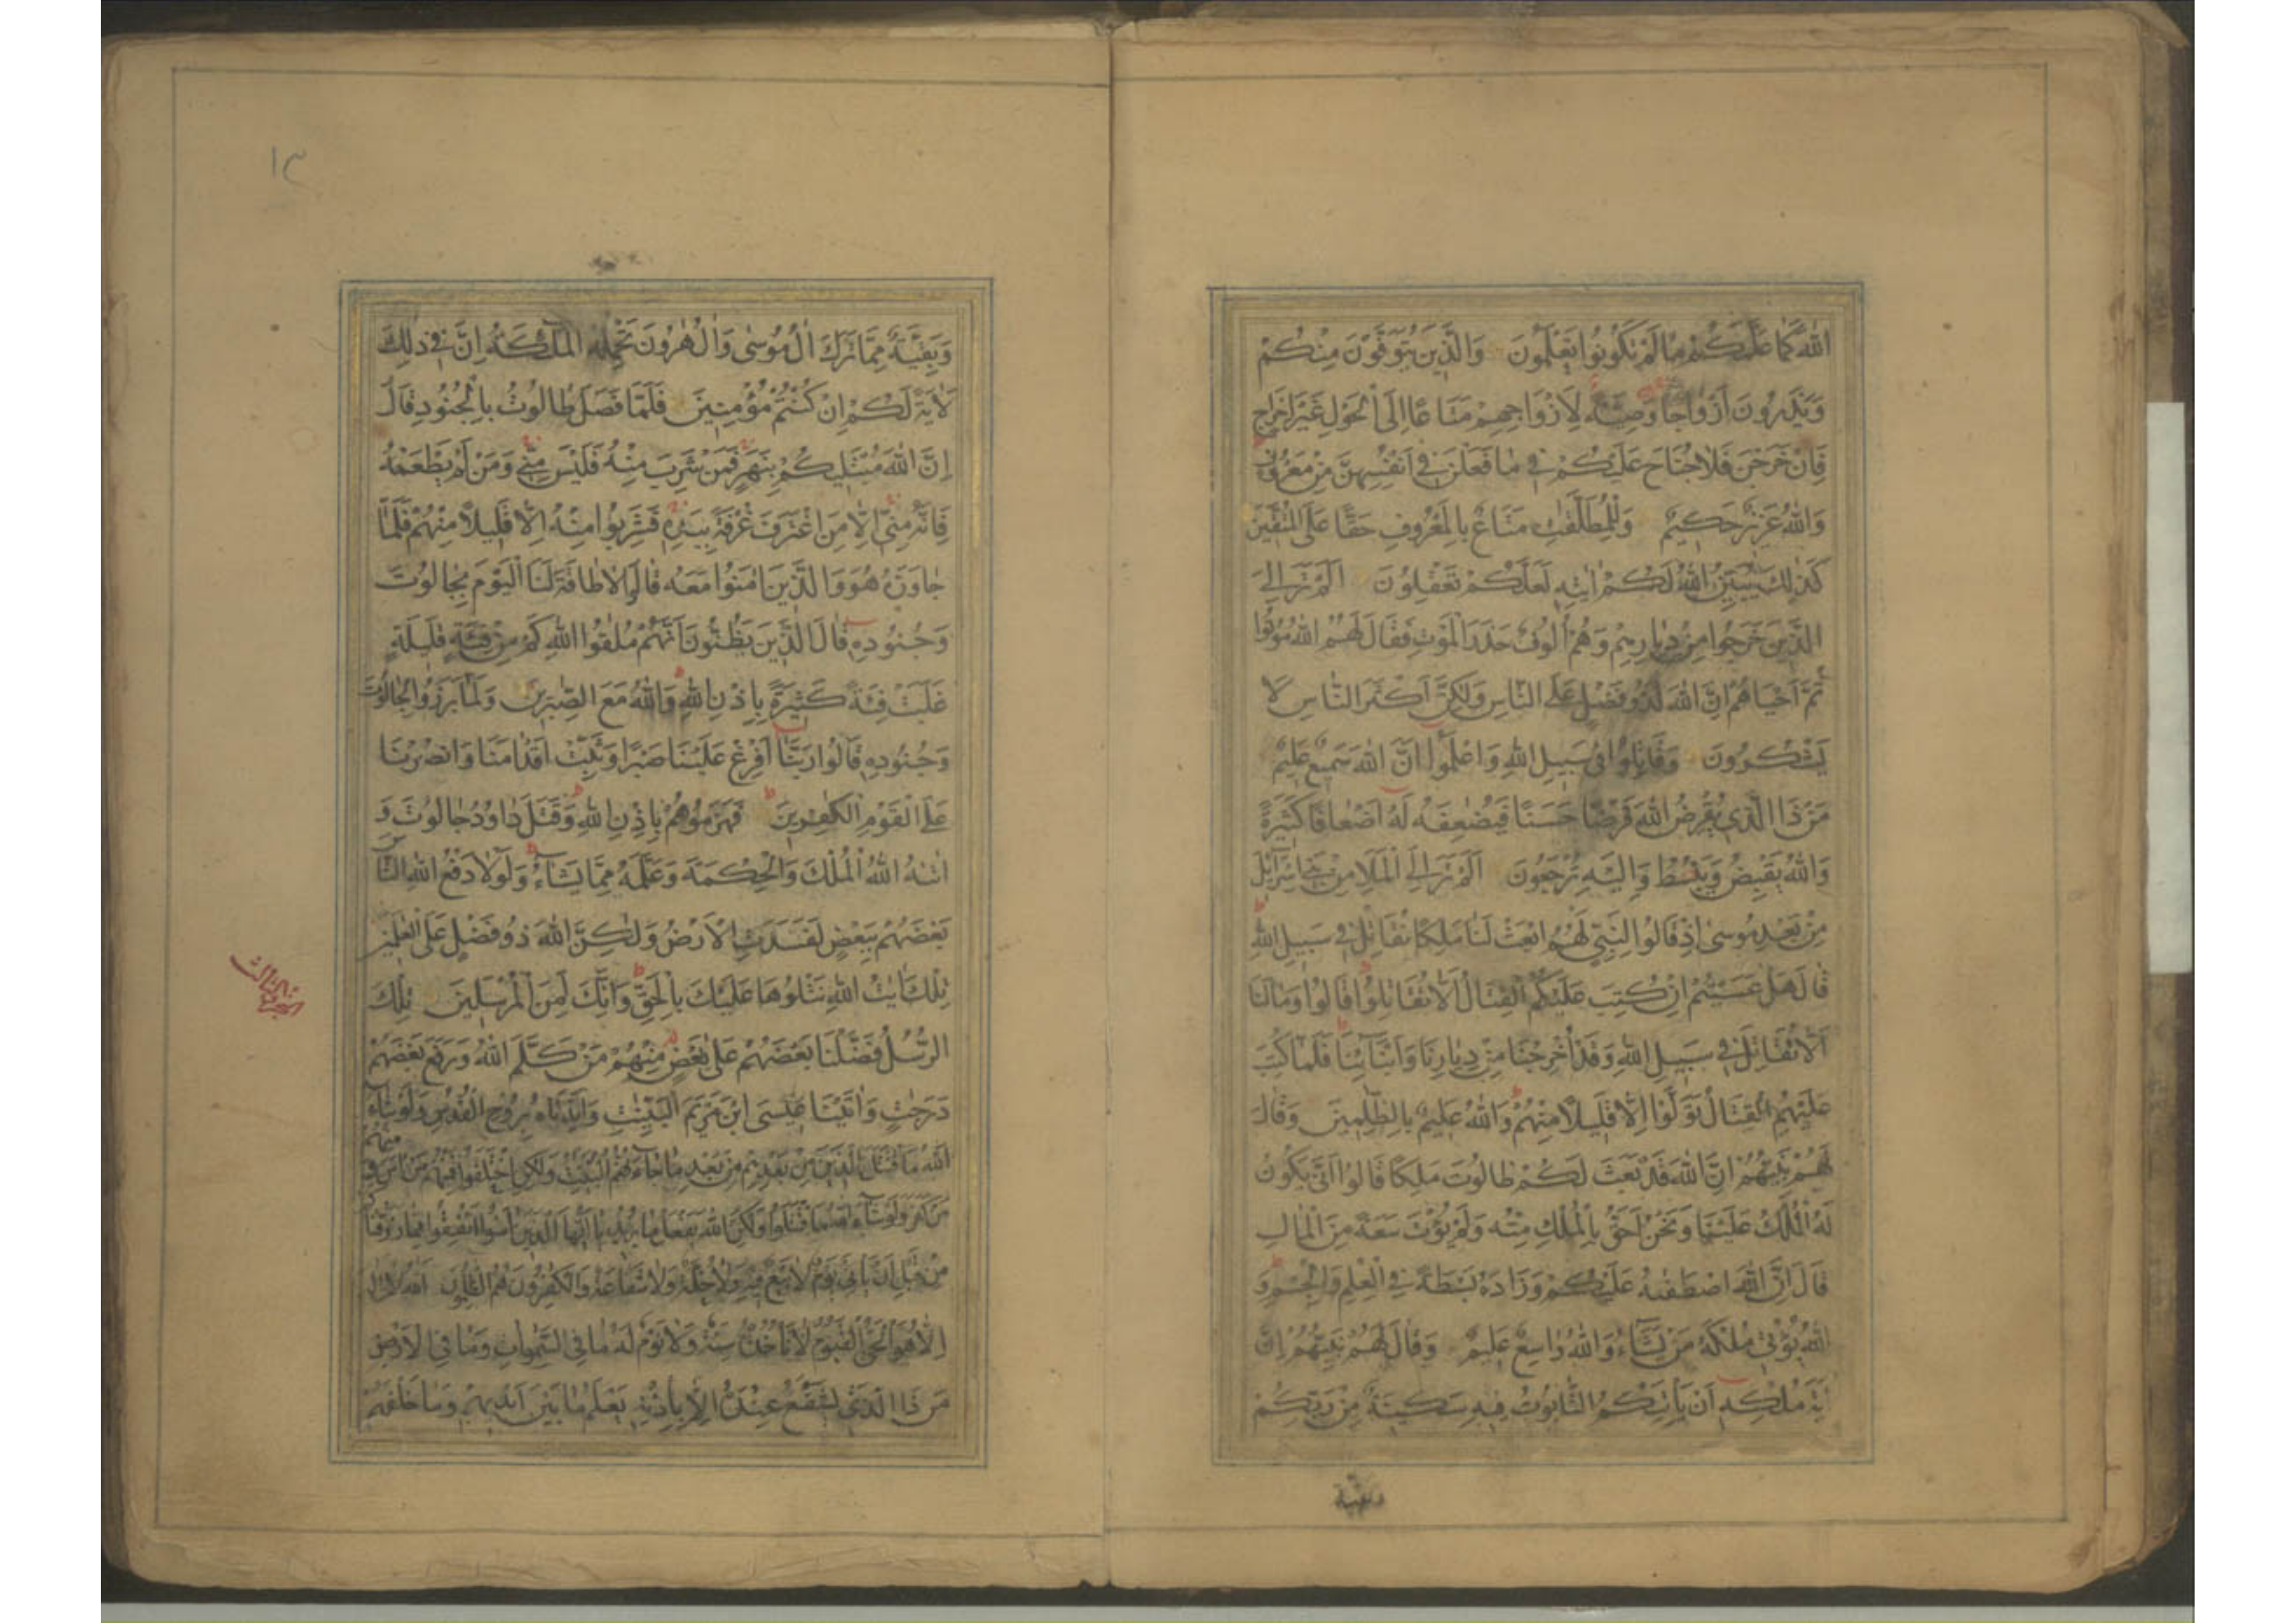 الله كَمَا عَلَّمَكُمْ مَا لَمْ تَكُونُوا تَعْلَمُونَ وَالَّذِينَ يُتَوَفَّوْنَ مِنْكُمْ
وَيَذَرُونَ أَزْوَاجًا وَصِيَّةً لِأَزْوَاجِهِمْ مَتَاعًا إِلَى الْحَوْلِ غَيْرَ إِخْرَاجٍ
فَإِنْ خَرَجْنَ فَلَا جُنَاحَ عَلَيْكُمْ فِي مَا فَعَلْنَ فِي أَنْفُسِهِنَّ مِنْ مَعْرُوفٍ
وَاللهُ عَزِيزٌ حَكِيمٌ وَلِلْمُطَلَّقٰتِ مَتَاعٌ بِالْمَعْرُوفِ حَقًّا عَلَى الْمُتَّقِينَ
كَذٰلِكَ يُبَيِّنُ اللهُ لَكُمْ اٰيٰتِهِ لَعَلَّكُمْ تَعْقِلُونَ اَلَمْ تَرَ اِلَى
الَّذِينَ خَرَجُوا مِنْ دِيَارِهِمْ وَهُمْ أُلُوفٌ حَذَرَ الْمَوْتِ فَقَالَ لَهُمُ اللهُ مُوتُوا
ثُمَّ أَحْيَاهُمْ اِنَّ اللهَ لَذُو فَضْلٍ عَلَى النَّاسِ وَلٰكِنَّ أَكْثَرَ النَّاسِ لَا
يَشْكُرُونَ وَقَاتِلُوا فِي سَبِيلِ اللهِ وَاعْلَمُوا اَنَّ اللهَ سَمِيعٌ عَلِيمٌ
مَنْ ذَا الَّذِي يُقْرِضُ اللهَ قَرْضًا حَسَنًا فَيُضٰعِفَهُ لَهُ أَضْعَافًا كَثِيرَةً
وَاللهُ يَقْبِضُ وَيَبْسُطُ وَاِلَيْهِ تُرْجَعُونَ اَلَمْ تَرَ اِلَى الْمَلَاِ مِنْ بَنِي اِسْرَآئِلَ
مِنْ بَعْدِ مُوسٰى اِذْ قَالُوا لِنَبِيٍّ لَهُمُ ابْعَثْ لَنَا مَلِكًا نُقَاتِلْ فِي سَبِيلِ اللهِ
قَالَ هَلْ عَسَيْتُمْ اِنْ كُتِبَ عَلَيْكُمُ الْقِتَالُ اَلَّا تُقَاتِلُوا قَالُوا وَمَا لَنَا
اَلَّا نُقَاتِلَ فِي سَبِيلِ اللهِ وَقَدْ أُخْرِجْنَا مِنْ دِيَارِنَا وَاَبْنَآئِنَا فَلَمَّا كُتِبَ
عَلَيْهِمُ الْقِتَالُ تَوَلَّوْا اِلَّا قَلِيلًا مِنْهُمْ وَاللهُ عَلِيمٌ بِالظّٰلِمِينَ وَقَالَ
لَهُمْ نَبِيُّهُمْ اِنَّ اللهَ قَدْ بَعَثَ لَكُمْ طَالُوتَ مَلِكًا قَالُوا اَنّٰى يَكُونُ
لَهُ الْمُلْكُ عَلَيْنَا وَنَحْنُ اَحَقُّ بِالْمُلْكِ مِنْهُ وَلَمْ يُؤْتَ سَعَةً مِنَ الْمَالِ
قَالَ اِنَّ اللهَ اصْطَفٰىهُ عَلَيْكُمْ وَزَادَهُ بَسْطَةً فِي الْعِلْمِ وَالْجِسْمِ وَ
اللهُ يُؤْتِي مُلْكَهُ مَنْ يَشَآءُ وَاللهُ وَاسِعٌ عَلِيمٌ وَقَالَ لَهُمْ نَبِيُّهُمْ اِنَّ
اٰيَةَ مُلْكِهِ اَنْ يَأْتِيَكُمُ التَّابُوتُ فِيهِ سَكِينَةٌ مِنْ رَبِّكُمْ
وَبَقِيَّةٌ مِمَّا تَرَكَ اٰلُ مُوسٰى وَاٰلُ هٰرُونَ تَحْمِلُهُ الْمَلٰٓئِكَةُ اِنَّ فِي ذٰلِكَ
لَاٰيَةً لَكُمْ اِنْ كُنْتُمْ مُؤْمِنِينَ فَلَمَّا فَصَلَ طَالُوتُ بِالْجُنُودِ قَالَ
اِنَّ اللهَ مُبْتَلِيكُمْ بِنَهَرٍ فَمَنْ شَرِبَ مِنْهُ فَلَيْسَ مِنِّي وَمَنْ لَمْ يَطْعَمْهُ
فَاِنَّهُ مِنِّي اِلَّا مَنِ اغْتَرَفَ غُرْفَةً بِيَدِهِ فَشَرِبُوا مِنْهُ اِلَّا قَلِيلًا مِنْهُمْ فَلَمَّا
جَاوَزَهُ هُوَ وَالَّذِينَ اٰمَنُوا مَعَهُ قَالُوا لَا طَاقَةَ لَنَا الْيَوْمَ بِجَالُوتَ
وَجُنُودِهِ قَالَ الَّذِينَ يَظُنُّونَ اَنَّهُمْ مُلٰقُوا اللهِ كَمْ مِنْ فِئَةٍ قَلِيلَةٍ
غَلَبَتْ فِئَةً كَثِيرَةً بِاِذْنِ اللهِ وَاللهُ مَعَ الصّٰبِرِينَ وَلَمَّا بَرَزُوا لِجَالُوتَ
وَجُنُودِهِ قَالُوا رَبَّنَا أَفْرِغْ عَلَيْنَا صَبْرًا وَثَبِّتْ اَقْدَامَنَا وَانْصُرْنَا
عَلَى الْقَوْمِ الْكٰفِرِينَ فَهَزَمُوهُمْ بِاِذْنِ اللهِ وَقَتَلَ دَاوُدُ جَالُوتَ وَ
اٰتٰىهُ اللهُ الْمُلْكَ وَالْحِكْمَةَ وَعَلَّمَهُ مِمَّا يَشَآءُ وَلَوْلَا دَفْعُ اللهِ النَّاسَ
بَعْضَهُمْ بِبَعْضٍ لَفَسَدَتِ الْاَرْضُ وَلٰكِنَّ اللهَ ذُو فَضْلٍ عَلَى الْعٰلَمِينَ
تِلْكَ اٰيٰتُ اللهِ نَتْلُوهَا عَلَيْكَ بِالْحَقِّ وَاِنَّكَ لَمِنَ الْمُرْسَلِينَ تِلْكَ
الرُّسُلُ فَضَّلْنَا بَعْضَهُمْ عَلٰى بَعْضٍ مِنْهُمْ مَنْ كَلَّمَ اللهُ وَرَفَعَ بَعْضَهُمْ
دَرَجٰتٍ وَاٰتَيْنَا عِيسَى ابْنَ مَرْيَمَ الْبَيِّنٰتِ وَاَيَّدْنَاهُ بِرُوحِ الْقُدُسِ وَلَوْ شَآءَ
اللهُ مَا اقْتَتَلَ الَّذِينَ مِنْ بَعْدِهِمْ مِنْ بَعْدِ مَا جَآءَتْهُمُ الْبَيِّنٰتُ وَلٰكِنِ اخْتَلَفُوا فَمِنْهُمْ مَنْ اٰمَنَ وَمِنْهُمْ
مَنْ كَفَرَ وَلَوْ شَآءَ اللهُ مَا اقْتَتَلُوا وَلٰكِنَّ اللهَ يَفْعَلُ مَا يُرِيدُ يَا اَيُّهَا الَّذِينَ اٰمَنُوا اَنْفِقُوا مِمَّا رَزَقْنَاكُمْ
مِنْ قَبْلِ اَنْ يَأْتِيَ يَوْمٌ لَا بَيْعٌ فِيهِ وَلَا خُلَّةٌ وَلَا شَفَاعَةٌ وَالْكٰفِرُونَ هُمُ الظّٰلِمُونَ اَللهُ لَا اِلٰهَ
اِلَّا هُوَ الْحَيُّ الْقَيُّومُ لَا تَأْخُذُهُ سِنَةٌ وَلَا نَوْمٌ لَهُ مَا فِي السَّمٰوَاتِ وَمَا فِي الْاَرْضِ
مَنْ ذَا الَّذِي يَشْفَعُ عِنْدَهُ اِلَّا بِاِذْنِهِ يَعْلَمُ مَا بَيْنَ اَيْدِيهِمْ وَمَا خَلْفَهُمْ
الجزء الثالث
وبقية